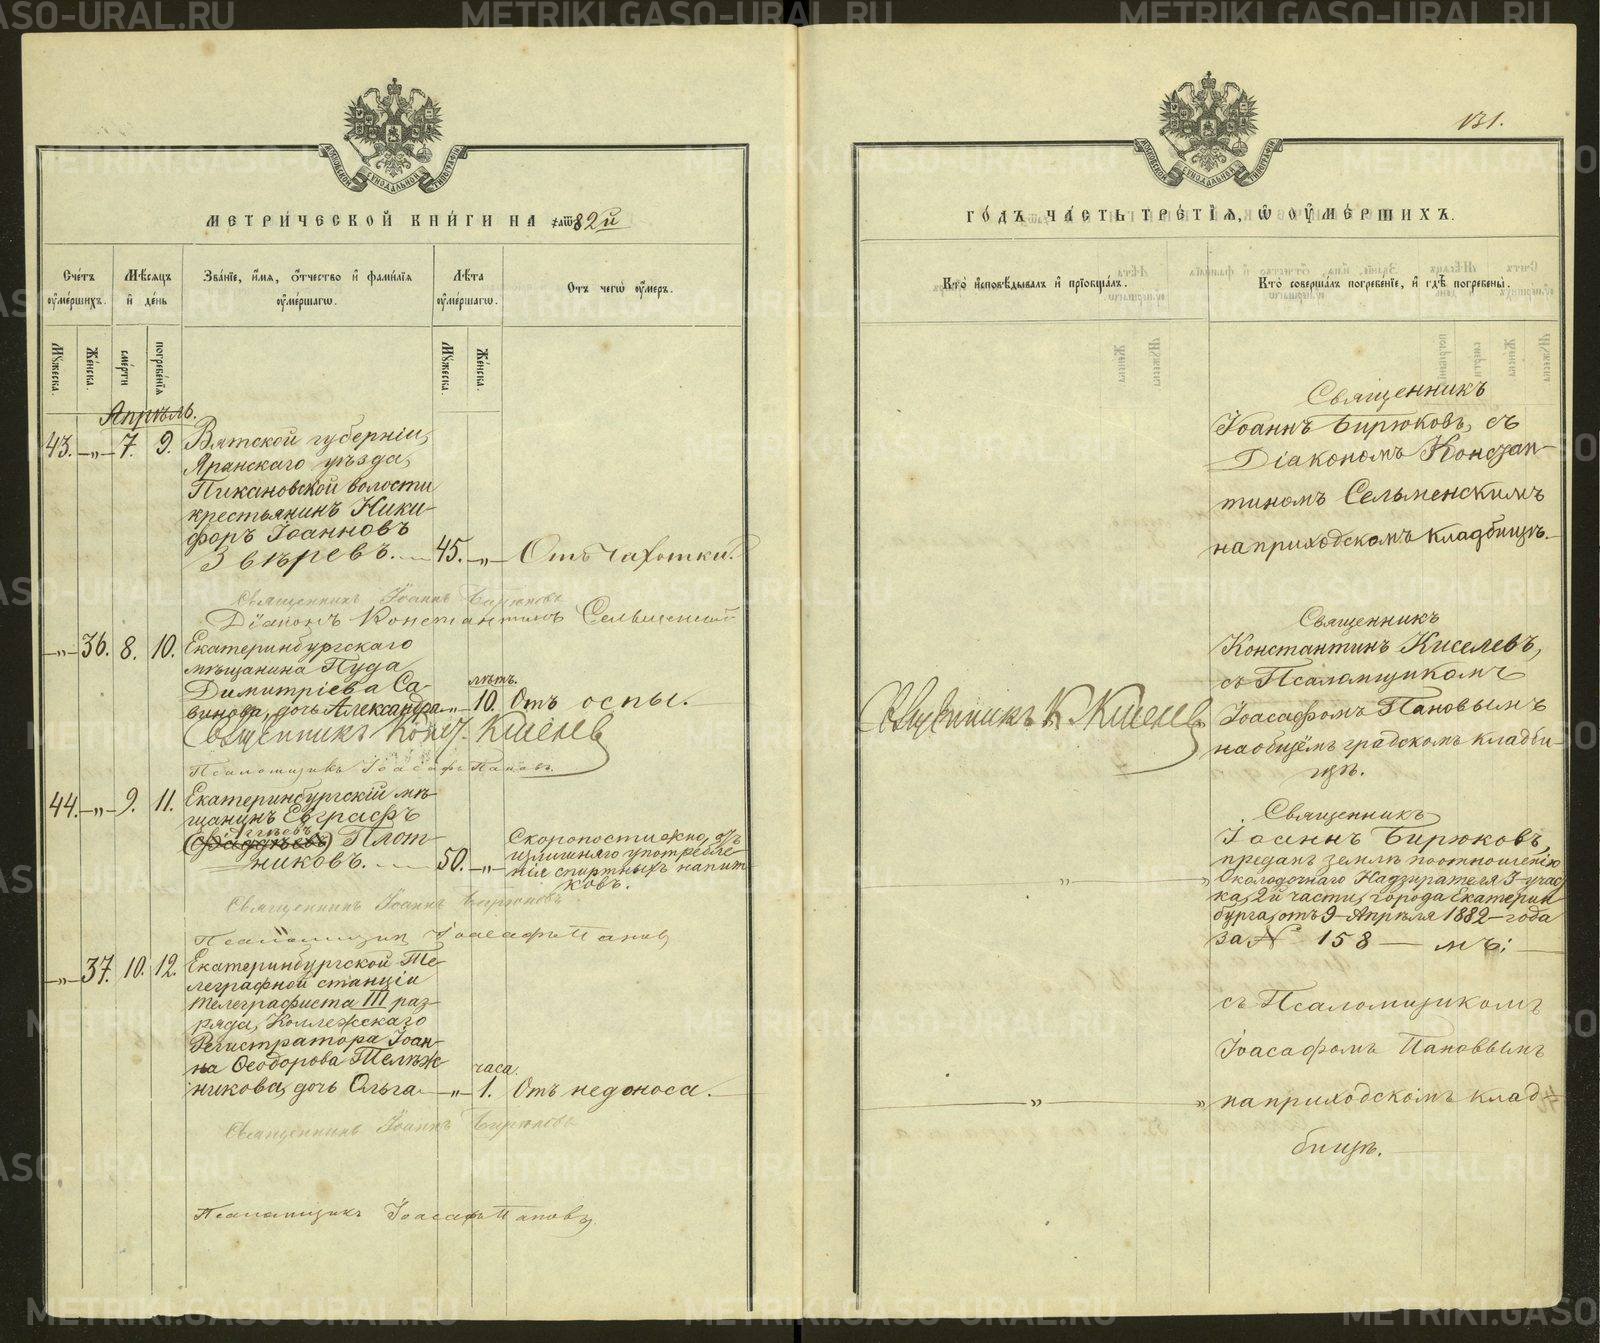 131.
МЕТРИЧЕСКОЙ КНИГИ НА 82й
Счетъ умершихъ.
Мѣсяцъ и день
Званіе, имя, отчество и фамилія умершаго.
Лѣта умершаго.
Отъ чего умеръ.
Мужеска.
Женска.
смерти
погребенія
Мужеска.
Женска.
Апрѣль.
43. —„— 7. 9. Вятской губерніи,
Яранскаго уѣзда,
Пикановской волости
крестьянинъ Ники-
форъ Іоанновъ
Звѣревъ. 45. —„— Отъ чахотки.
Священникъ Іоаннъ Бирюковъ
Діаконъ Константинъ Сельменскій
—„— 36. 8. 10. Екатеринбургскаго
мѣщанина Пуда
Димитріева Са-
лѣтъ.
винова, дочь Александра —„— 10. Отъ оспы.
Священникъ Конст. Киселевъ
Псаломщикъ Іоасафъ Пановъ.
44. —„— 9. 11. Екатеринбургскій мѣ-
щанинъ Евграфъ
Плот-
никовъ. 50. —„—
Скоропостижно, отъ
излишняго употребле-
нія спиртныхъ напит-
ковъ.
Священникъ Іоаннъ Бирюковъ
Псаломщикъ Іоасафъ Пановъ
—„— 37. 10. 12. Екатеринбургской Те-
леграфной станціи
телеграфиста III раз-
ряда, Коллежскаго
Регистратора Іоан-
на Ѳеодорова Телѣж-
часа.
никова, дочь Ольга —„— 1. Отъ недоноса.
Священникъ Іоаннъ Бирюковъ
Псаломщикъ Іоасафъ Пановъ
ГОДЪ ЧАСТЬ ТРЕТІЯ, О УМЕРШИХЪ.
Кто исповѣдывалъ и пріобщалъ.
Кто совершалъ погребеніе, и гдѣ погребены.
Священникъ
Іоаннъ Бирюковъ, съ
Діакономъ Констан-
тиномъ Сельменскимъ
на приходскомъ кладбищѣ.
Священникъ К. Киселевъ
Священникъ
Константинъ Киселевъ,
съ Псаломщикомъ
Іоасафомъ Пановымъ
на общемъ градскомъ кладби-
щѣ.
Священникъ
Іоаннъ Бирюковъ,
преданъ землѣ по отношенію
Околодочнаго Надзирателя 3 участ-
ка, 2й части, города Екатерин-
бурга, отъ 9 Апрѣля 1882 года
за № 158 — мъ;
съ Псаломщикомъ
Іоасафомъ Пановымъ
на приходскомъ клад-
бищѣ.
METRIKI.GASO-URAL.RU